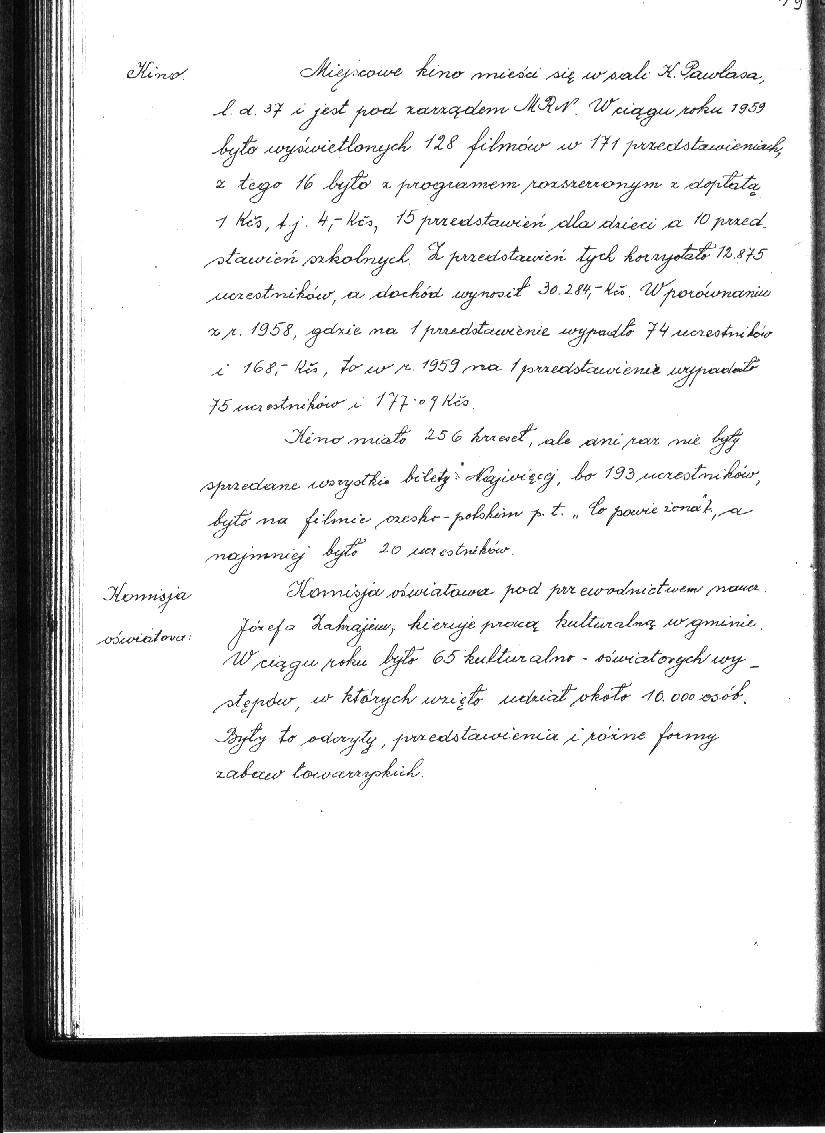 Kino.
Miejscowe kino mieści się w sali K. Pawlasa,
l. d. 37 i jest pod zarządem MRN. W ciągu roku 1959
było wyświetlonych 128 filmów w 171 przedstawieniach,
z tego 16 było z programem rozszerzonym z dopłatą
1 Kčs, t.j. 4,- Kčs, 15 przedstawień dla dzieci a 10 przed.
stawień szkolnych. Z przedstawień tych korzystało 12.875
uczestników, a dochód wynosił 30.284,- Kčs. W porównaniu
z r. 1958, gdzie na 1 przedstawienie wypadło 74 uczestników
i 168,- Kčs, to w r. 1959 na 1 przedstawienie wypadało
75 uczestników i 177·09 Kčs.
Kino miało 256 krzeseł, ale ani raz nie były
sprzedane wszystkie bilety. Najwięcej, bo 193 uczestników,
było na filmie czesko-polskim p. t. „Co powie żona?", a
najmniej było 20 uczestników.
Komisja
oświatowa:
Komisja oświatowa pod przewodnictwem naucz.
Józefa kieruje pracą kulturalną w gminie.
W ciągu roku było 65 kulturalno-oświatowych wy_
stępów, w których wzięło udział około 10.000 osób.
Były to odczyty, przedstawienia i różne formy
zabaw towarzyskich.